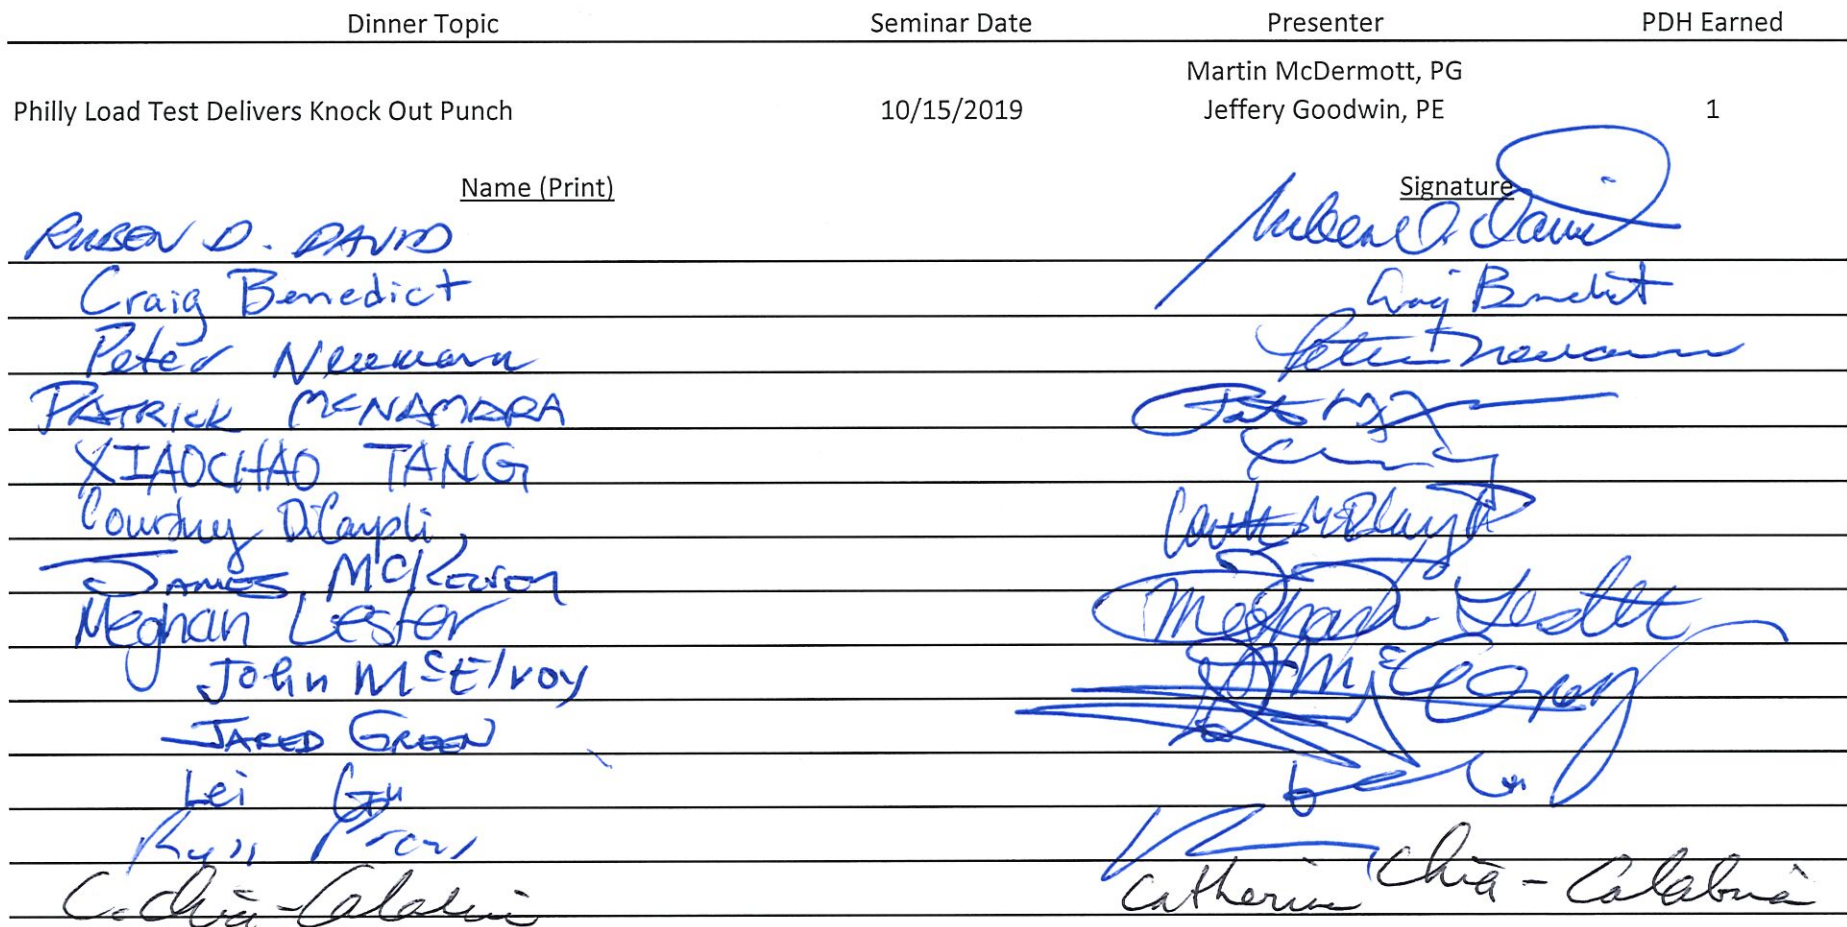 Dinner Topic Seminar Date Presenter PDH Earned
Martin McDermott, PG
Philly Load Test Delivers Knock Out Punch 10/15/2019 Jeffery Goodwin, PE 1
Name (Print) Signature
RUBEN D. DAVID Ruben D. David
Craig Benedict Craig Benedict
Peter Neumann Peter Neumann
PATRICK McNAMARA
XIAOCHAO TANG
Courtney
JAMES McKelvey
Meghan Lester Meghan Lester
John McElroy McElroy
JARED GREEN
Lei Gu
Russ
C. Chia-Calabria Catherine Chia-Calabria